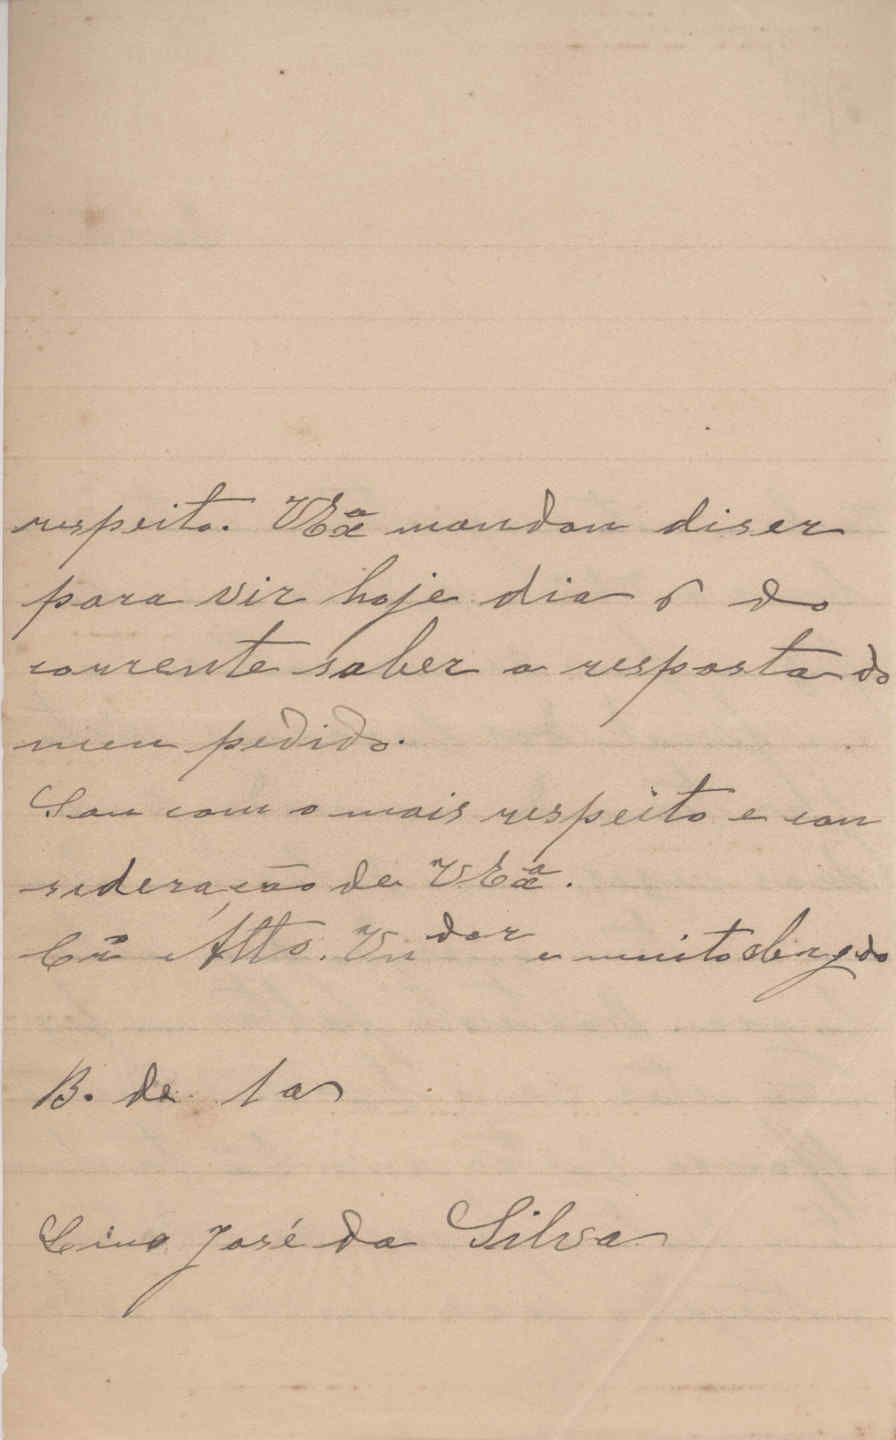 respeito. VExª mandou diser
para vir hoje dia 6 do
corrente saber a resposta do
meu pedido.
Sou com o mais respeito e con
sideração de VExª.
Crº Attº. Vndor e muito obrgdo
B. de
Lino José da Silva